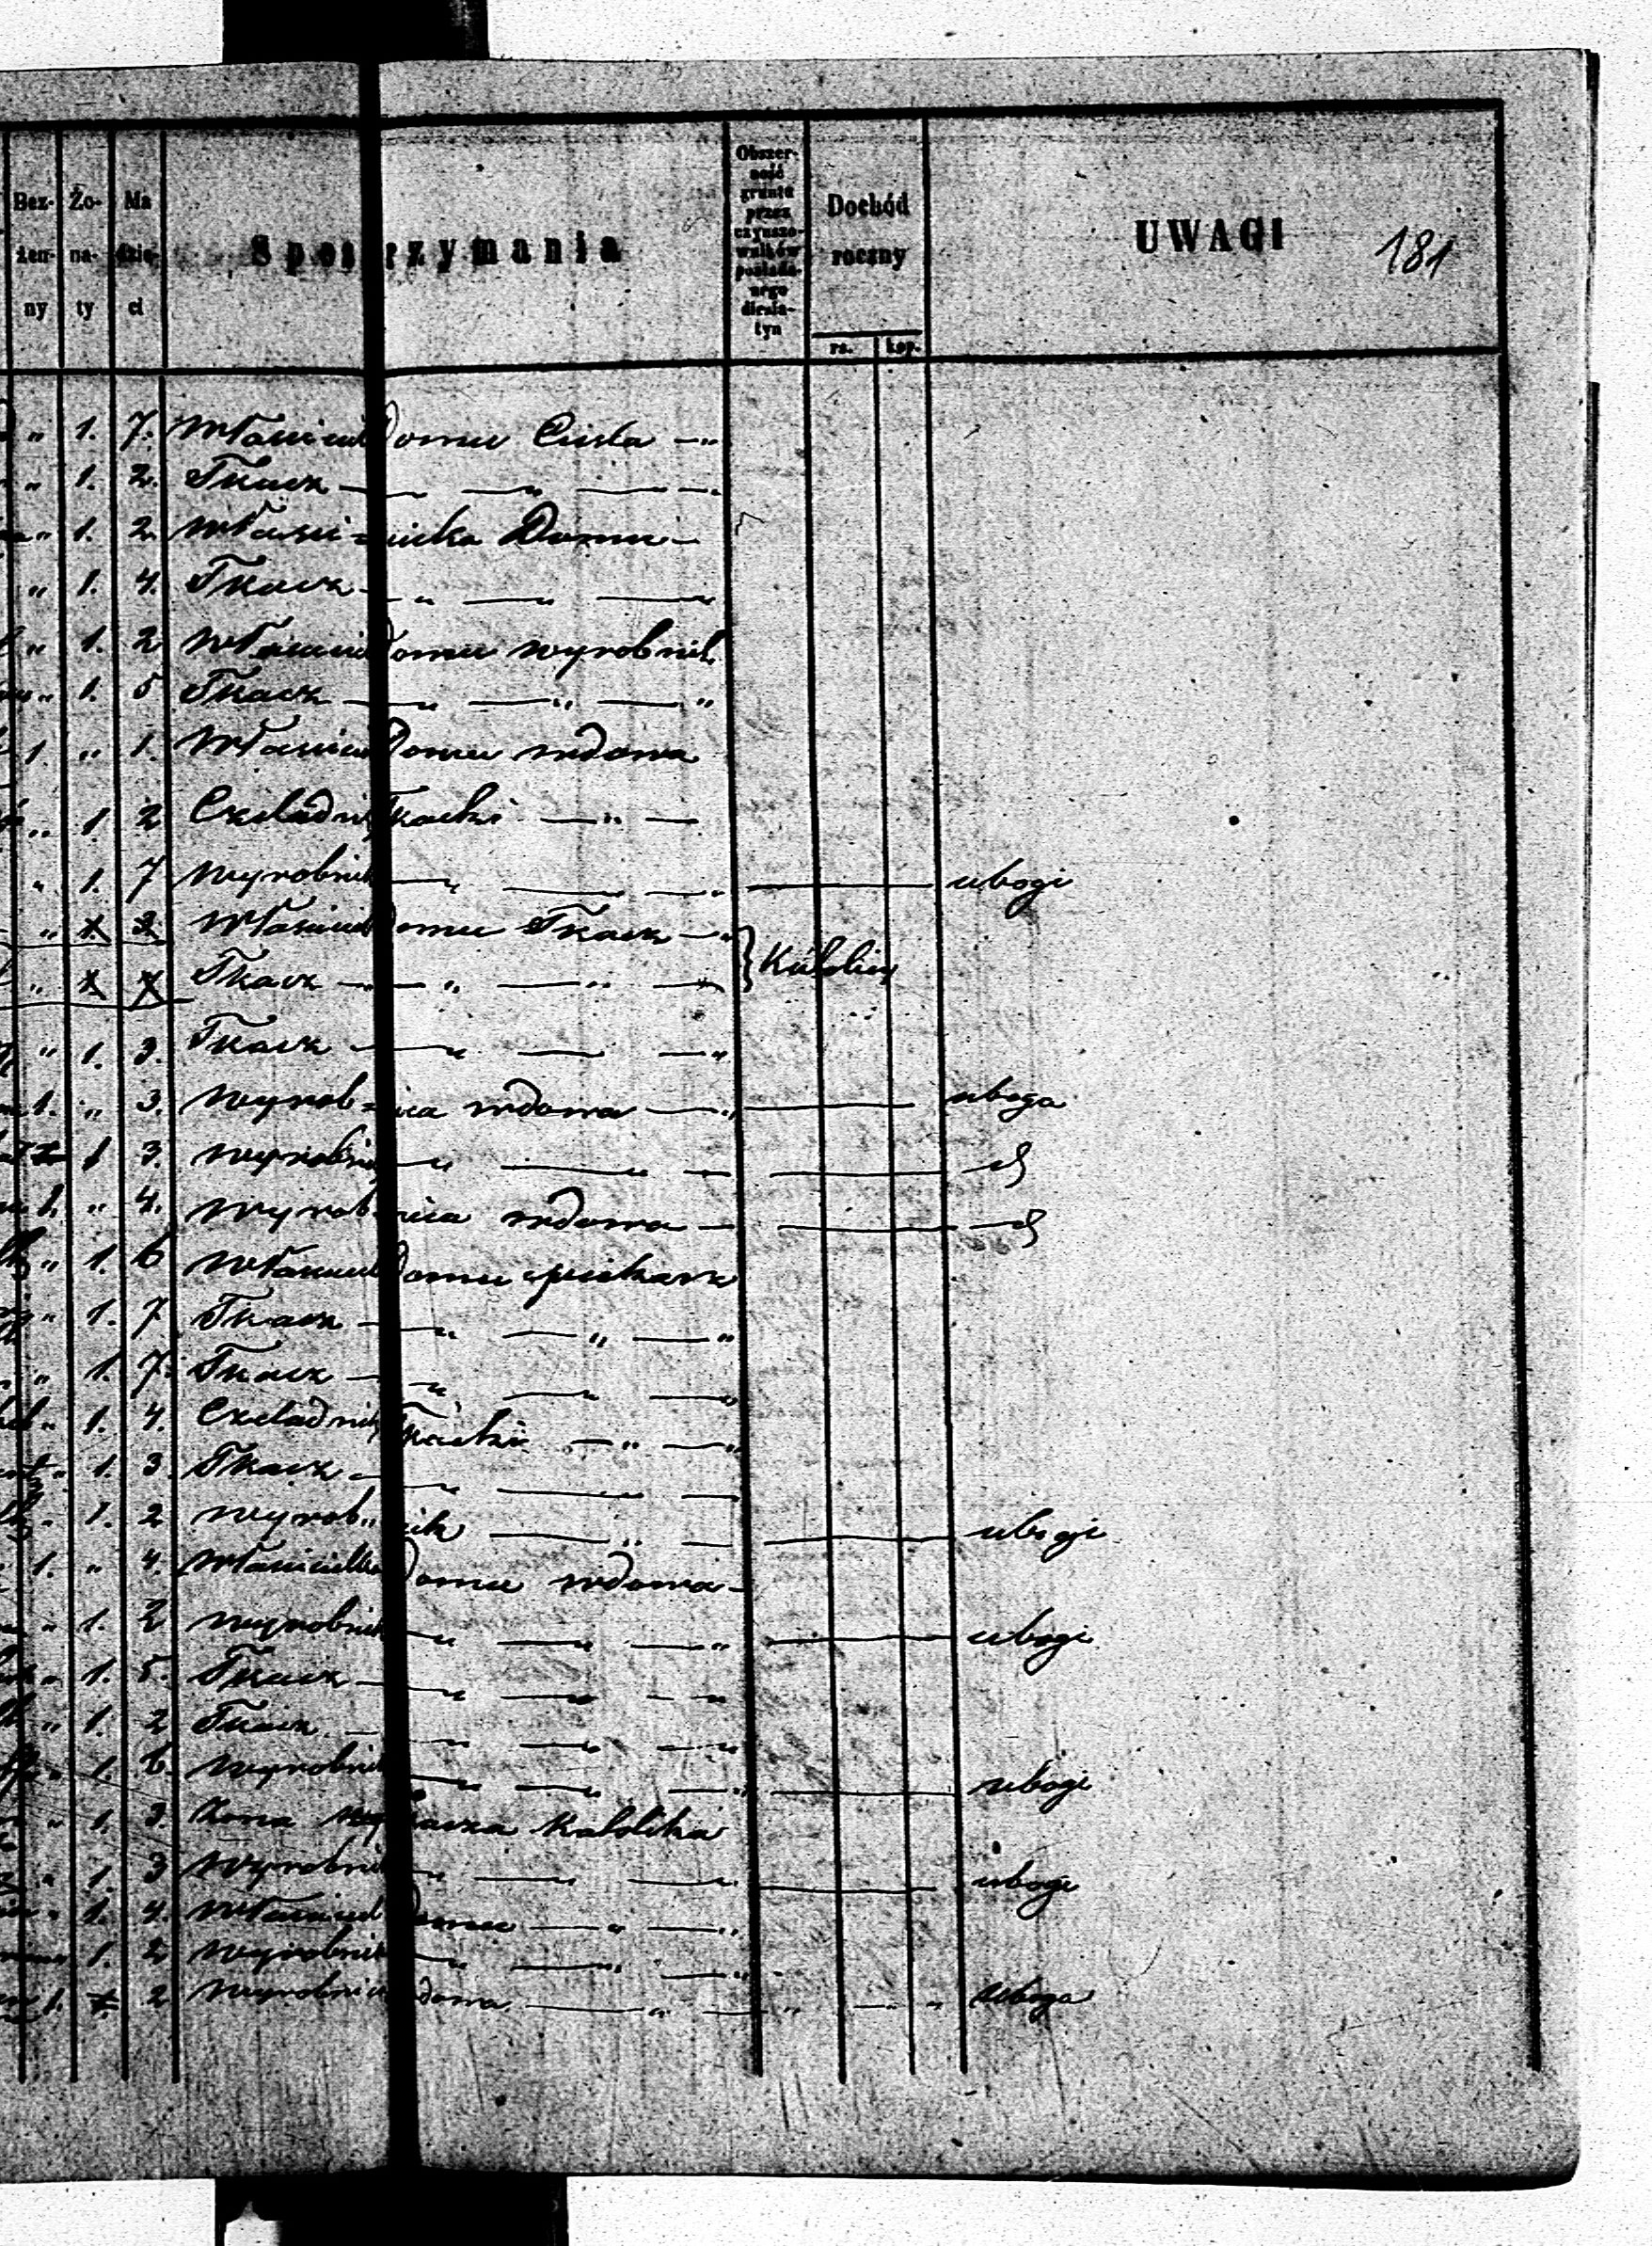 181
Bez- Żo- Ma Obszer-
żen- na- dzie- ność
ny ty ci gruntu
przez
czynszo-
wników
posiada-
nego
diesia-
tyn
Spos rzymania Dochód roczny UWAGI
rs. kop.
" 1. 7. Właściciel Domu Cieśla — "
" 1. 2. Tkacz — " — " — "
" 1. 2. Właści= cielka Domu —
" 1. 4. Tkacz — " — " — "
" 1. 2 Właściciel Domu wyrobnik
" 1. 5 Tkacz — " — " — "
1. " 1. Właściciel Domu wdowa
" 1. 2 Czeladnik Tkacki — " —
" 1. 7 Wyrobnik — " — " — " ubogi
" Właściciel Domu Tkacz — " } Katolicy
" Tkacz — " — " —
" 1. 3. Tkacz — " — " — "
1. " 3. Wyrob= nica wdowa — " — uboga
1 3. Wyrobnik — " — " —
1. " 4. Wyrob nica wdowa —
" 1. 6 Właściciel Domu piekarz
" 1. 7 Tkacz — " — " — "
" 1. 7. Tkacz — " — " — "
" 1. 4. Czeladnik Tkacki — " — "
" 1. 3. Tkacz — " — " —
" 1. 2 Wyrob" nik — " — ubogi
1. " 4. Właścicielka Domu wdowa —
" 1. 2 Wyrobnik — " — " — " ubogi
" 1. 5. Tkacz — " — " — "
" 1. 2 Tkacz — " — " — "
" 1. 6. Wyrobnik — " — " — " ubogi
" 1. 3. Żona Tkacza Katolika
" 1 3 Wyrobnik — " — " — " ubogi
" 1. 4. Właściciel Domu — " — "
" 1. 2 Wyrobnik — " — " — "
1. 2 Wyrobnica wdowa — " — " — " uboga